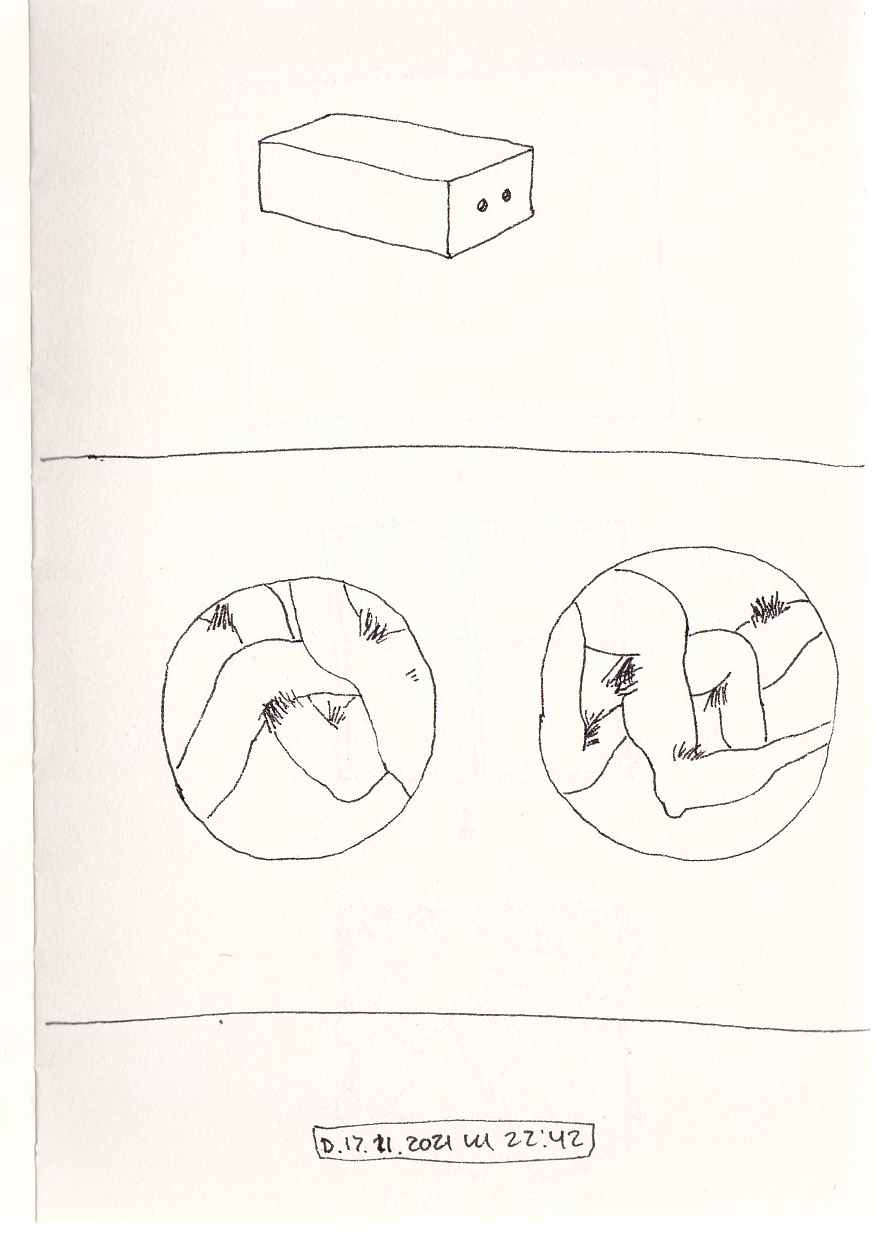 D.17.11.2021 um 22:42